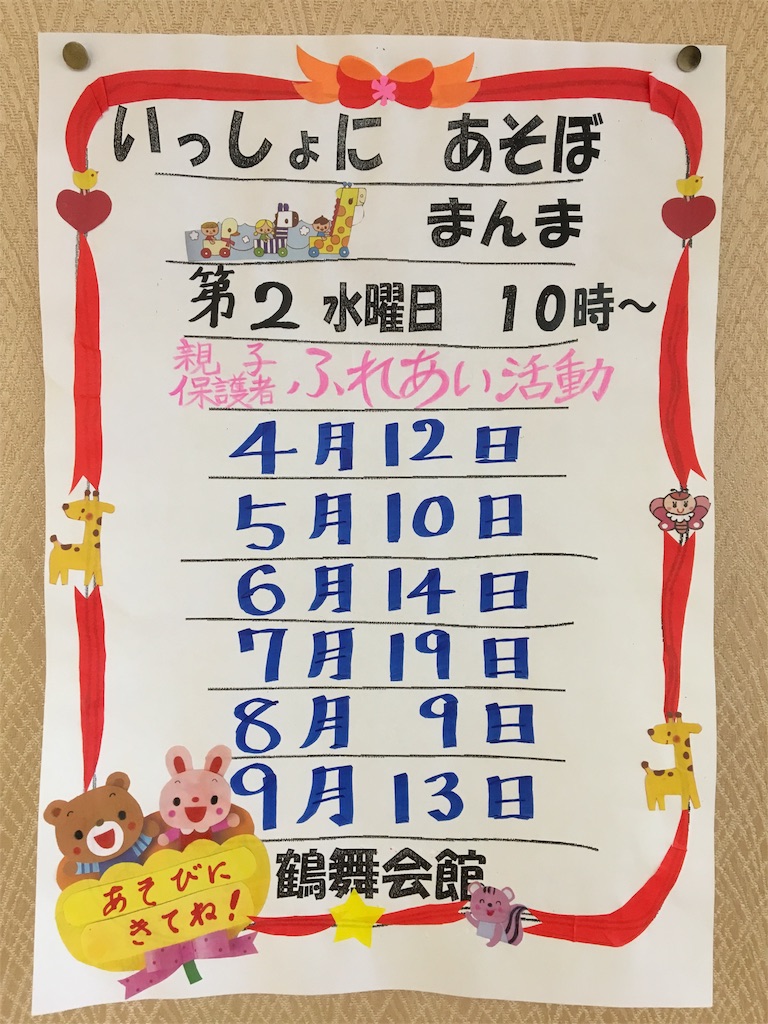 いっしょに あそぼ
まんま
第2 水曜日 10時～
親子
保護者 ふれあい活動
4月12日
5月10日
6月14日
7月19日
8月 9日
9月13日
鶴舞会館
あそびに
きてね!